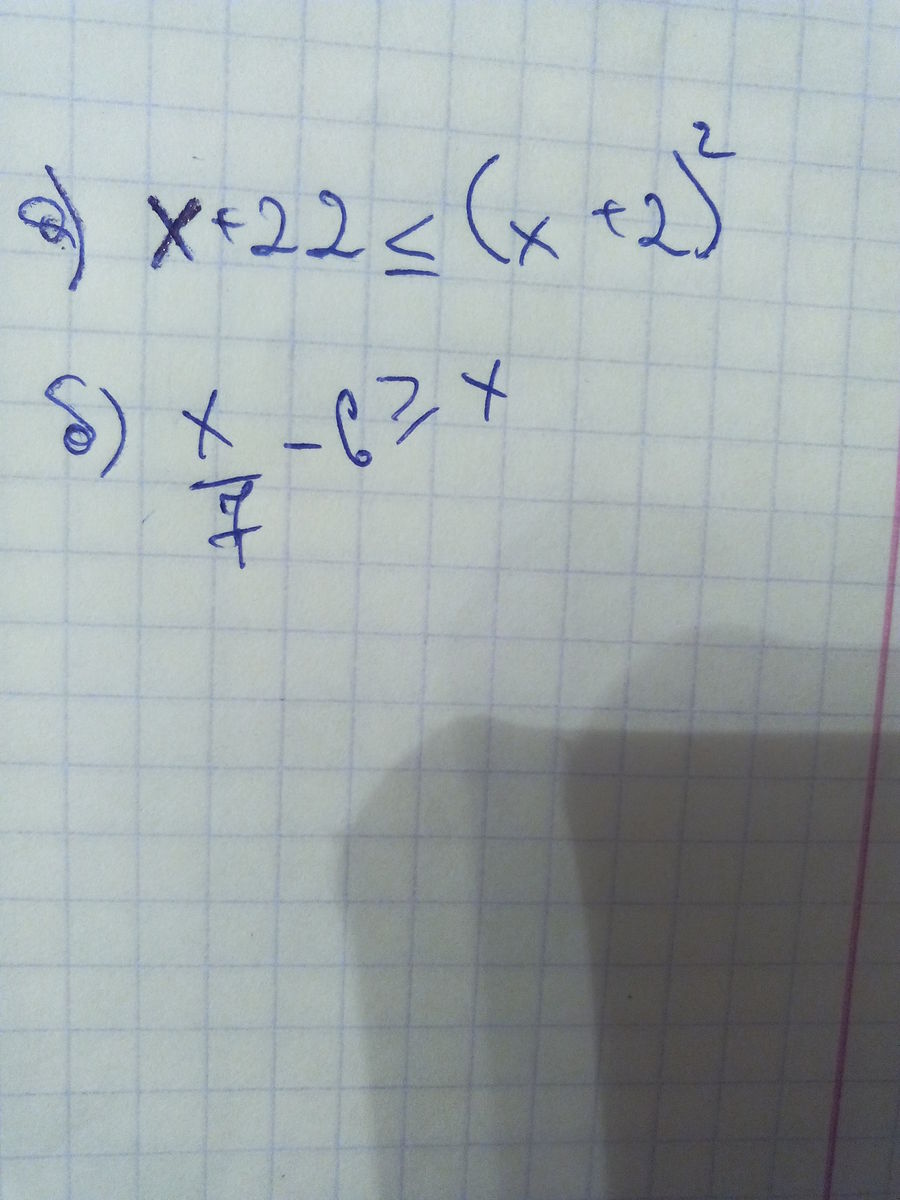 а) x+22 ≤ (x+2)²
б) x/7 - 6 ≥ x